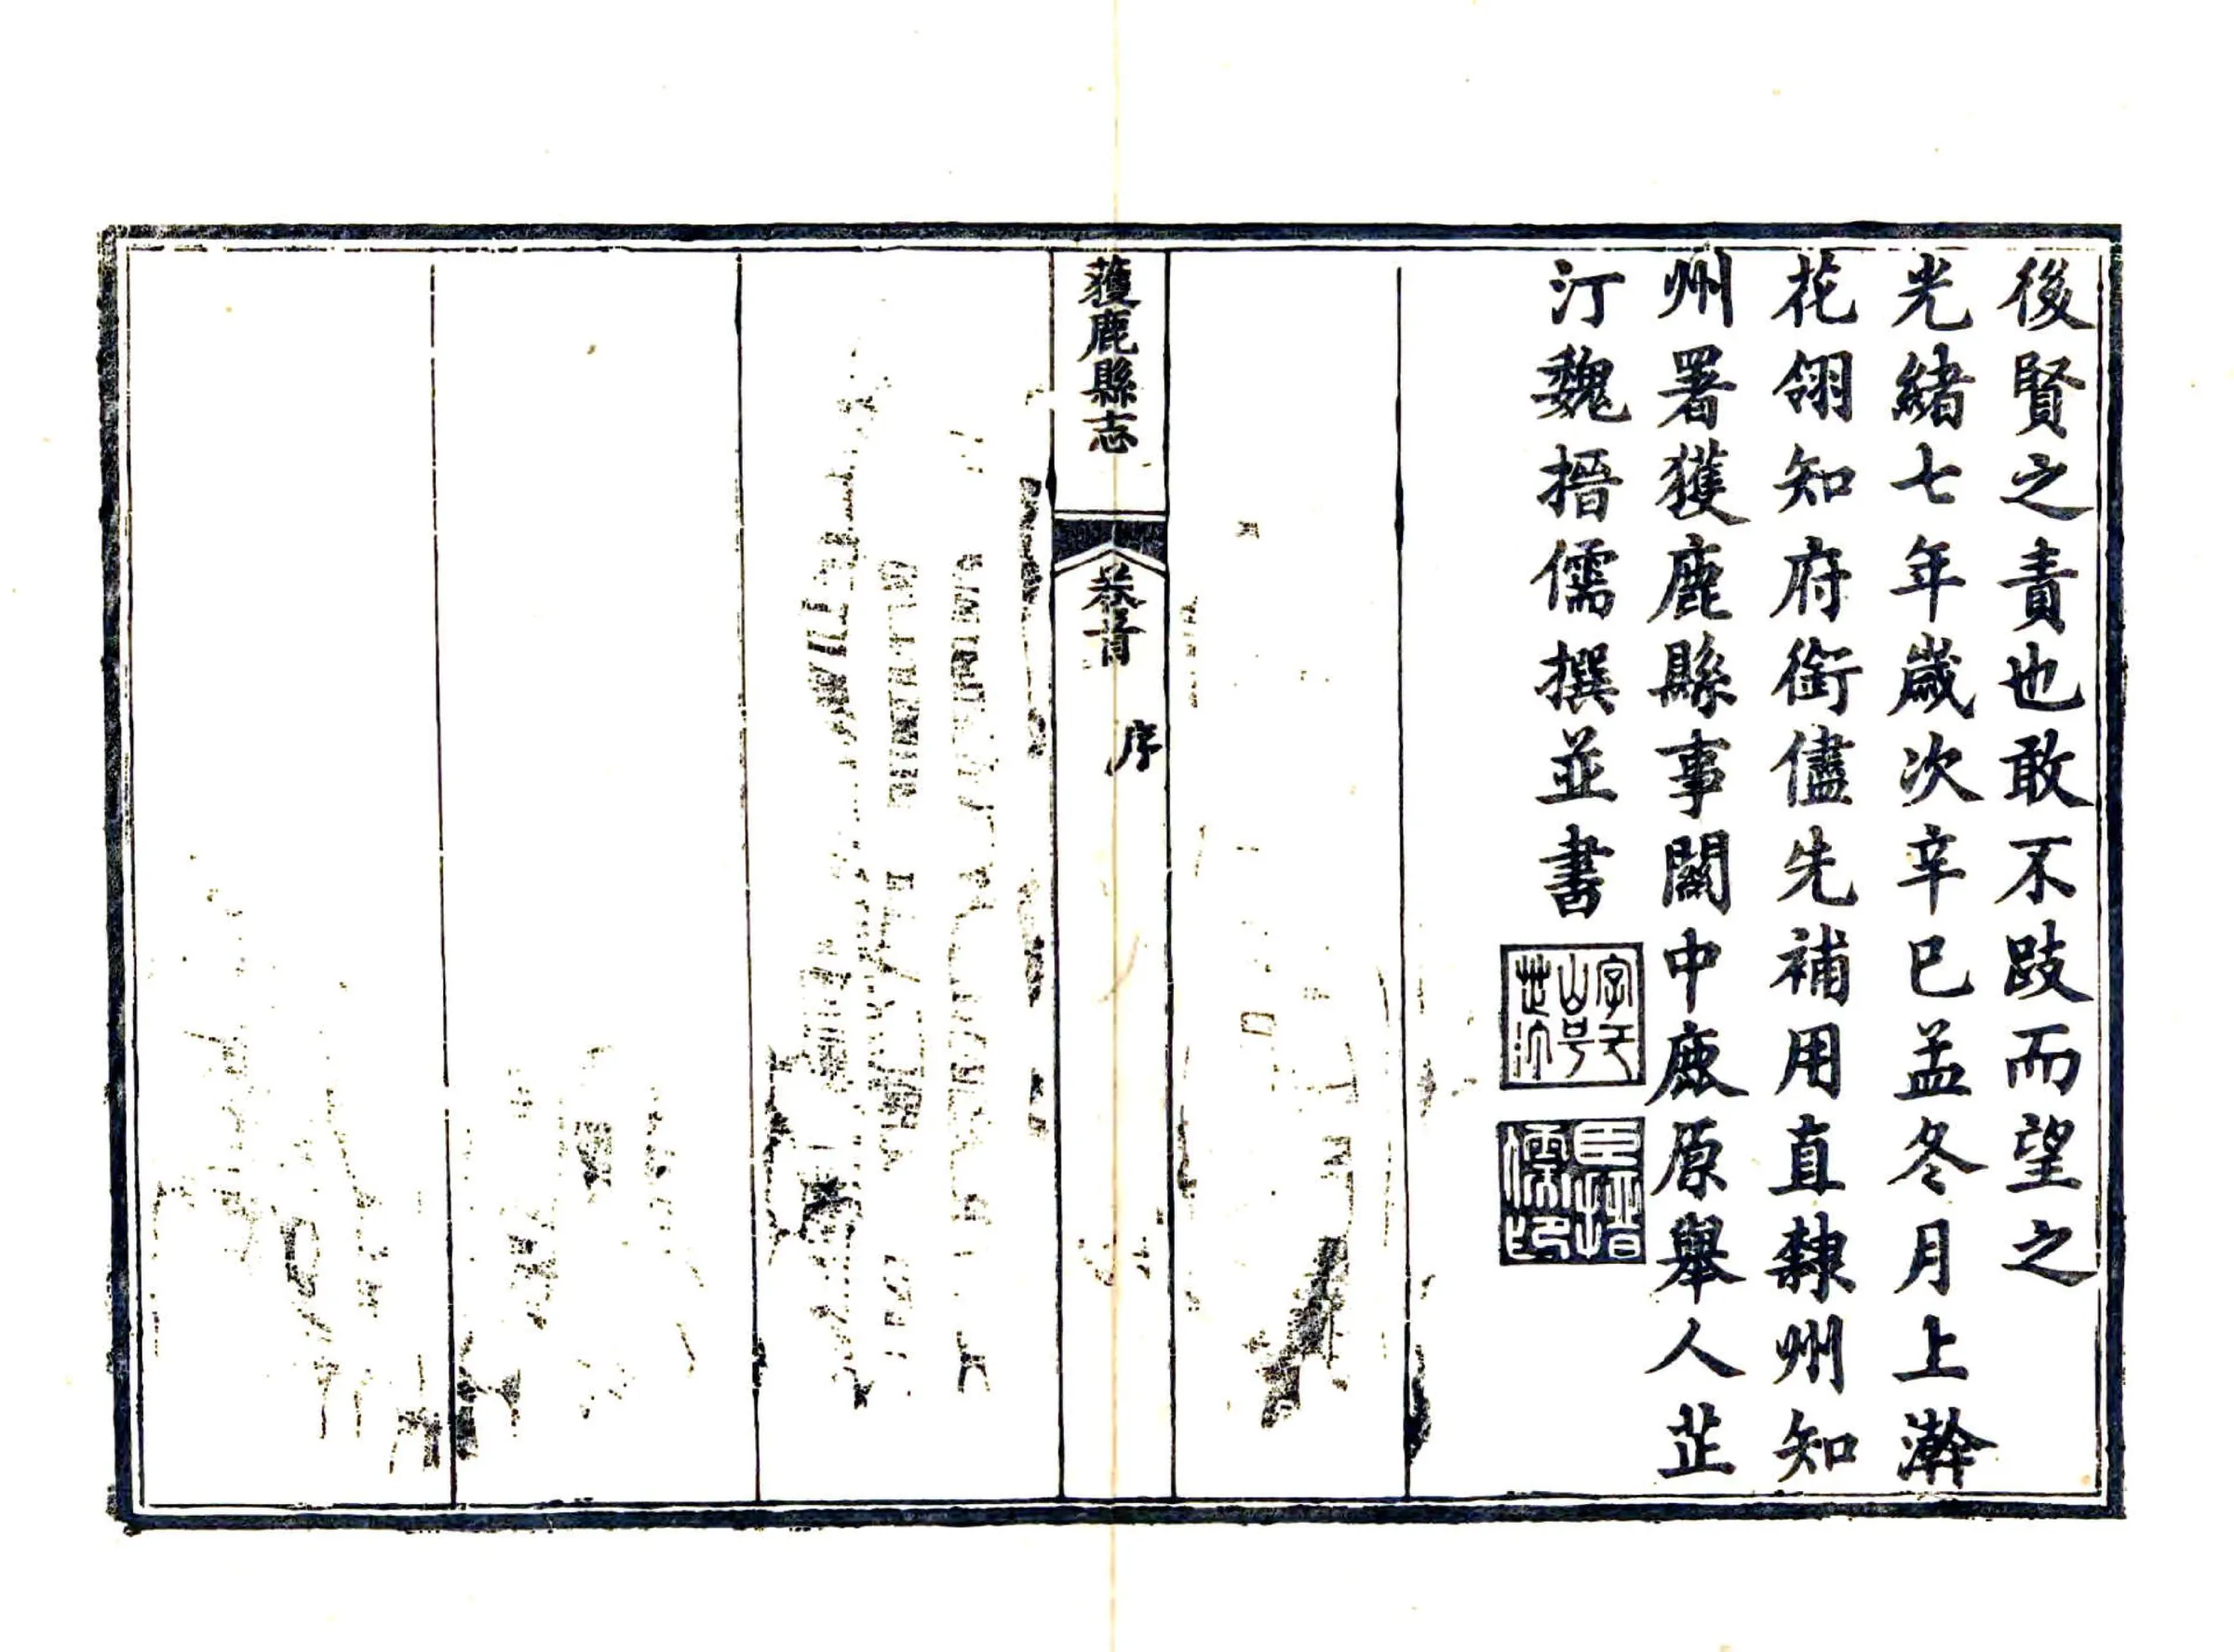 後賢之責也敢不跂而望之
光緒七年歲次辛巳孟冬月上澣
花翎知府銜儘先補用直隸州知
州署獲鹿縣事關中鹿原舉人芷
汀魏搢儒撰並書
字天山号芷汀
臣搢儒印
獲鹿縣志
卷首
序